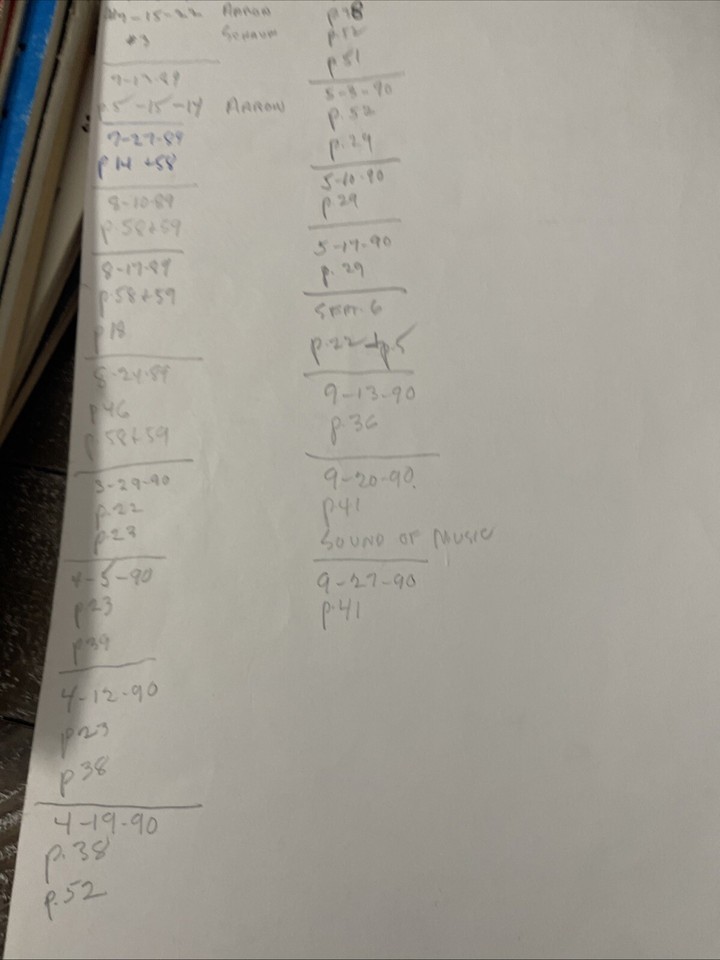 -15-22 Aaron
#3 Schaum
7-13-89
p.5-15-14 Aaron
7-27-89
p 14 +58
8-10-89
p.58+59
8-17-89
p.58+59
p18
8-24-89
p46
p.58+59
3-29-90
p.22
p.23
4-5-90
p23
p39
4-12-90
p23
p38
4-19-90
p.38
p.52
p.52
p51
5-3-90
p.52
p.29
5-10-90
p.29
5-17-90
p.29
Sept. 6
p.22 + p.5
9-13-90
p.36
9-20-90
p41
Sound of Music
9-27-90
p.41